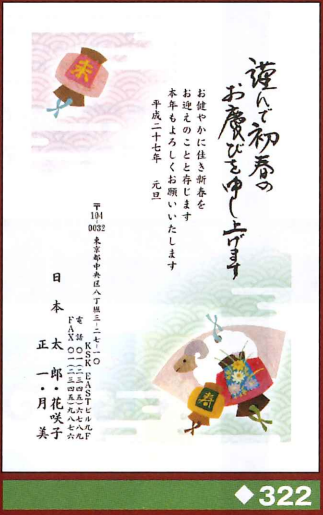 謹んで初春の
お慶びを申し上げます
お健やかに佳き新春を
お迎えのことと存じます
本年もよろしくお願いいたします
平成二十七年 元旦
〒104-0032 東京都中央区八丁堀三-二七-一〇
KSK EASTビル九F
電話〇一二三(四五)六七八九
FAX〇一二三(四五)九八七六
日本太郎・花咲子
正一・月美
未
寿
◆322